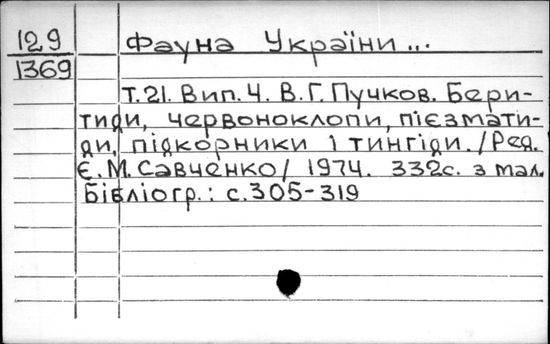 129
1369
Фауна України ...
Т.21. Вип.4. В.Г.Пучков. Бери-
тиди, червоноклопи, пієзмати-
ди, підкорники і тингіди. /Ред.
Є.М.Савченко/ 1974. 332с. з мал.
Бібліогр.: с.305-319